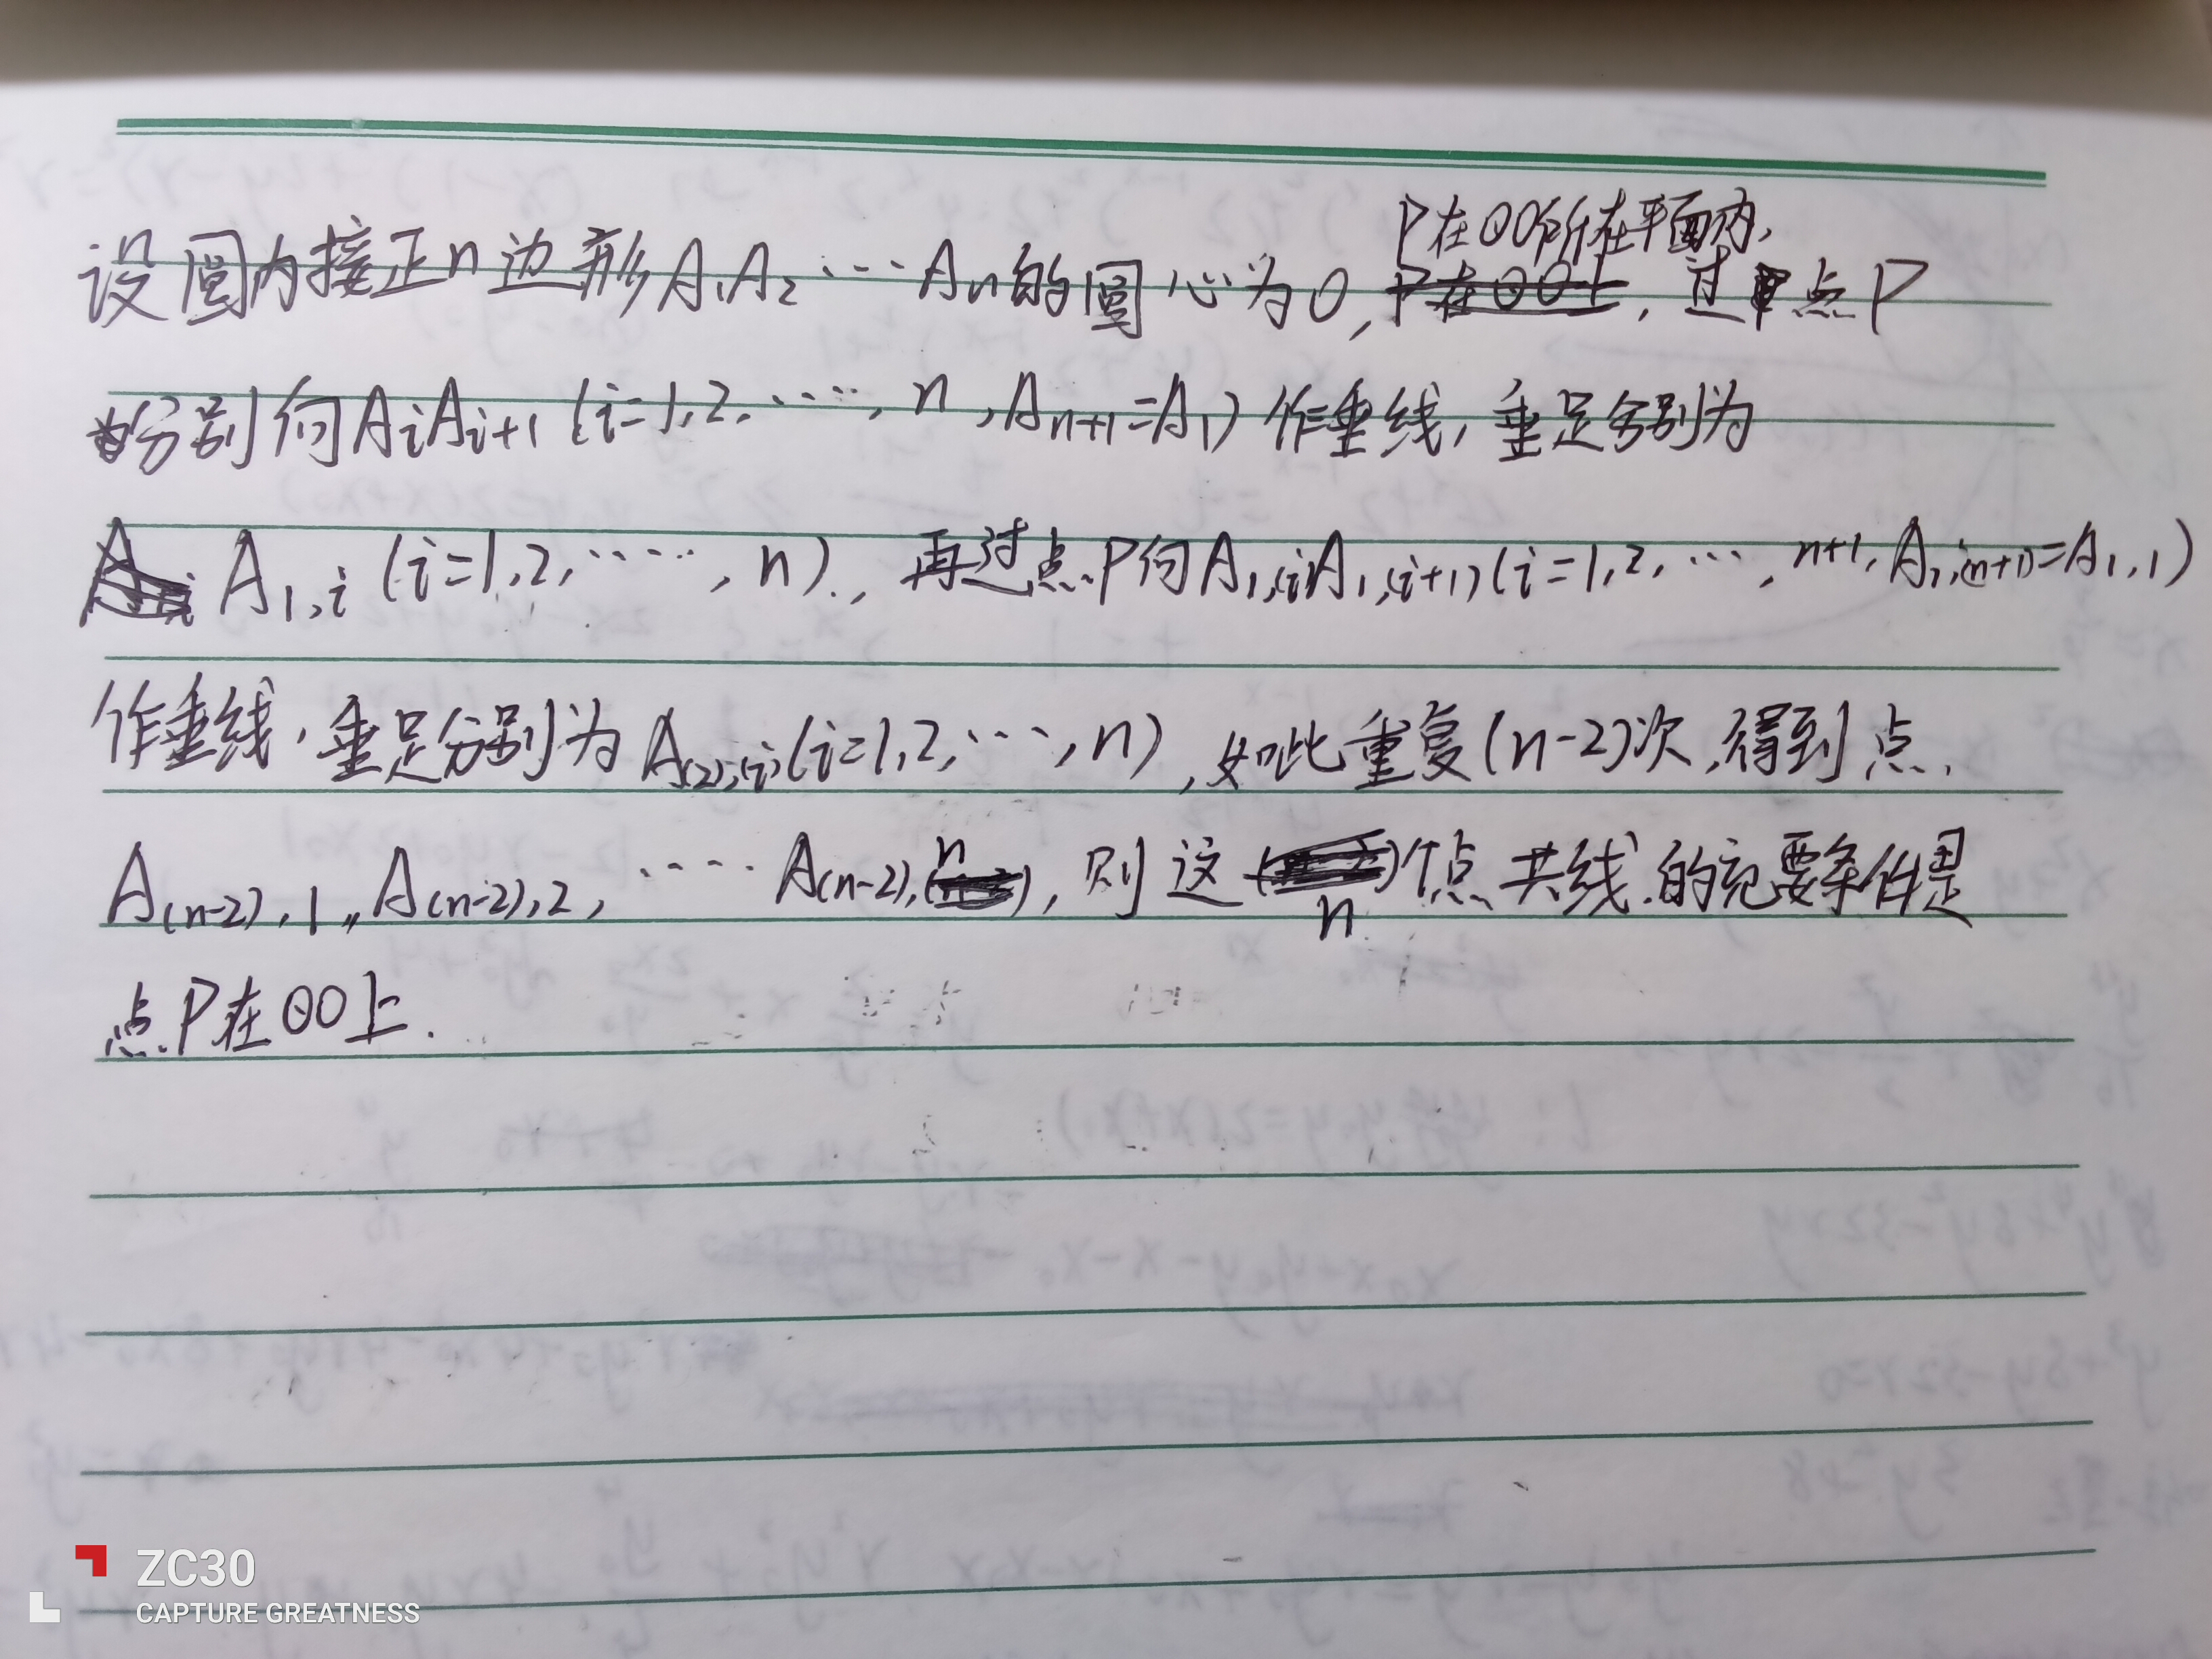 设圆内接正n边形A₁A₂……Aₙ的圆心为O,P在⊙O所在平面内,过点P
分别向AᵢAᵢ₊₁(i=1,2,……,n,Aₙ₊₁=A₁)作垂线,垂足分别为
A₁,ᵢ(i=1,2,……,n).,再过点P向A₁,₍ᵢ₎A₁,₍ᵢ₊₁₎(i=1,2,…,n+1,A₁,₍ₙ₊₁₎=A₁,₁)
作垂线,垂足分别为A₍₂₎,₍ᵢ₎(i=1,2,…,n),如此重复(n-2)次,得到点
A₍ₙ₋₂₎,₁,A₍ₙ₋₂₎,₂,……A₍ₙ₋₂₎,ₙ,则这n个点共线的充要条件是
点P在⊙O上.
ZC30
CAPTURE GREATNESS